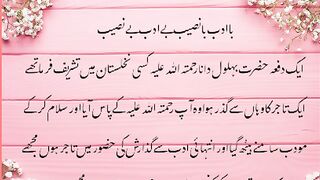 باادب بانصیب بے ادب بے نصیب
ایک دفعہ حضرت بہلول دانا رحمتہ اللہ علیہ کسی نخلستان میں تشریف فرما تھے
ایک تاجر کا وہاں سے گذر ہوا وہ آپ رحمتہ اللہ علیہ کے پاس آیا اور سلام کر کے
مودب سامنے بیٹھ گیا اور انتہائی ادب سے گذارش کی حضور میں تاجر ہوں مجھے